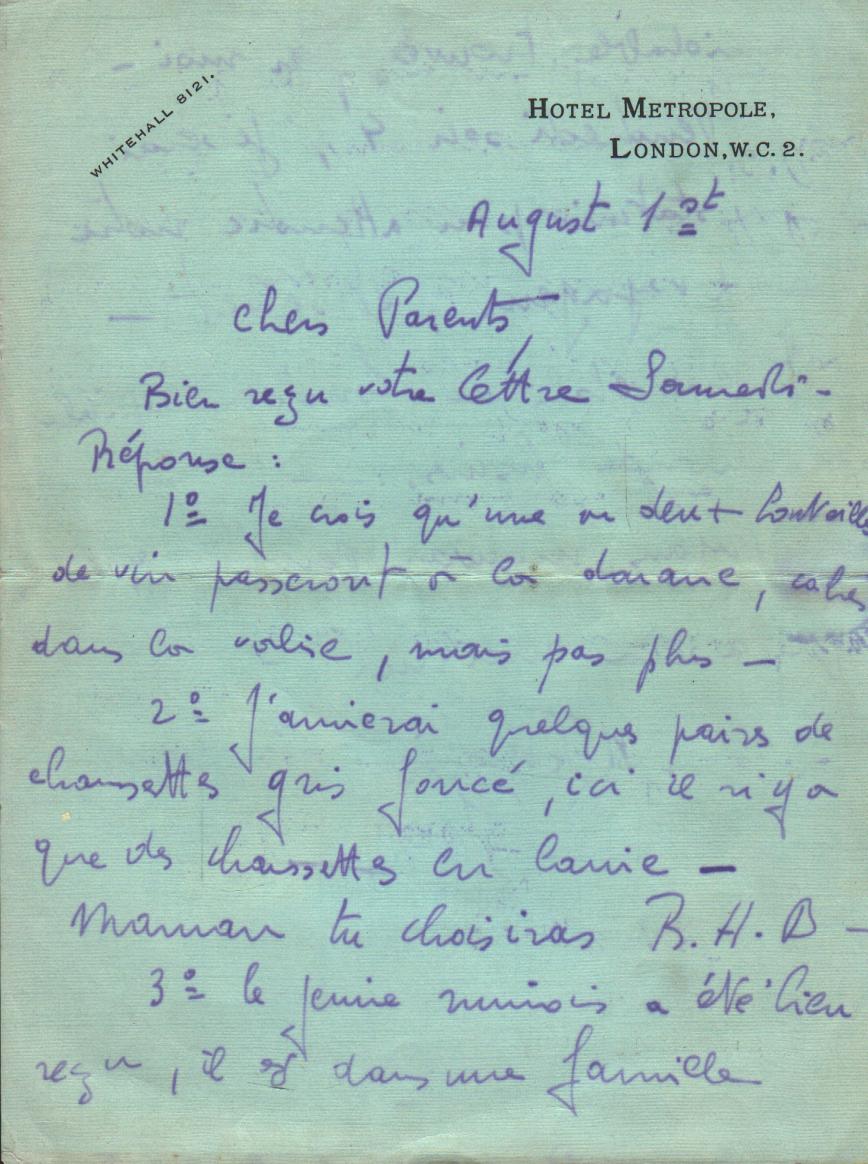 WHITEHALL 8121.
HOTEL METROPOLE,
LONDON, W.C. 2.
August 1st
Chers Parents
Bien reçu votre lettre Samedi -
Réponse :
1º Je crois qu'une ou deux bouteilles
de vin passeront à la douane,
dans la valise, mais pas plus -
2º J'aimerai quelques paires de
chaussettes gris foncé, ici il n'y a
que des chaussettes en laine -
Maman tu choisiras B.H.B -
3º le jeune a été bien
reçu, il est dans une famille